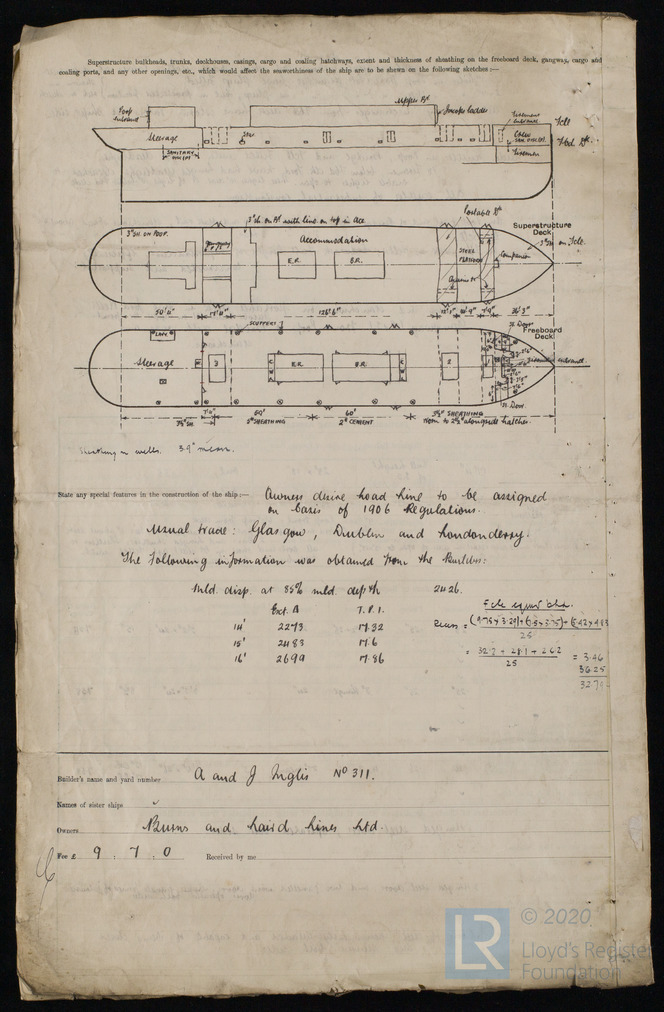 Superstructure bulkheads, trunks, deckhouses, casings, cargo and coaling hatchways, extent and thickness of sheathing on the freeboard deck, gangway, cargo and
coaling ports, and any other openings, etc., which would affect the seaworthiness of the ship are to be shewn on the following sketches:—
Upper Dk
Poop
Smoke ladder
Firemens
entrance
Fcle
Steerage
Crew
Fbd. Dk.
SANITARY
Firemen
3" sh. on Dk with lino on top in Acc.
Portable Dk
3" SH. ON POOP.
Accommodation
Superstructure
Deck
3" sh. on Fcle.
E.R.
B.R.
STEEL
Companion
50' 4"
126' 6"
36' 3"
SCUPPERS
St. Door
Freeboard
Deck
LAVS
Steerage
3
E.R.
B.R.
2
St. Door
7' 4"
59'
60'
3½" SHEATHING
3½" SH.
3" SHEATHING
2" CEMENT
down to 2½" alongside hatches.
Sheathing in wells. 3.9" mean.
State any special features in the construction of the ship:— Owners desire load line to be assigned
on basis of 1906 Regulations.
Usual trade: Glasgow, Dublin and Londonderry.
The following information was obtained from the Builders:
Mld. disp. at 85% mld. depth 2426.
Ext. Δ T.P.I.
Fcle equiv
14' 2273 17.32
25
15' 2483 17.6
16' 2699 17.86
25
= 3.46
36.25
Builder's name and yard number A and J Inglis No 311.
Names of sister ships
Owners Burns and Laird Lines Ltd.
Fee £ 9 . 7 . 0 Received by me
LR
© 2020
Lloyd's Register
Foundation